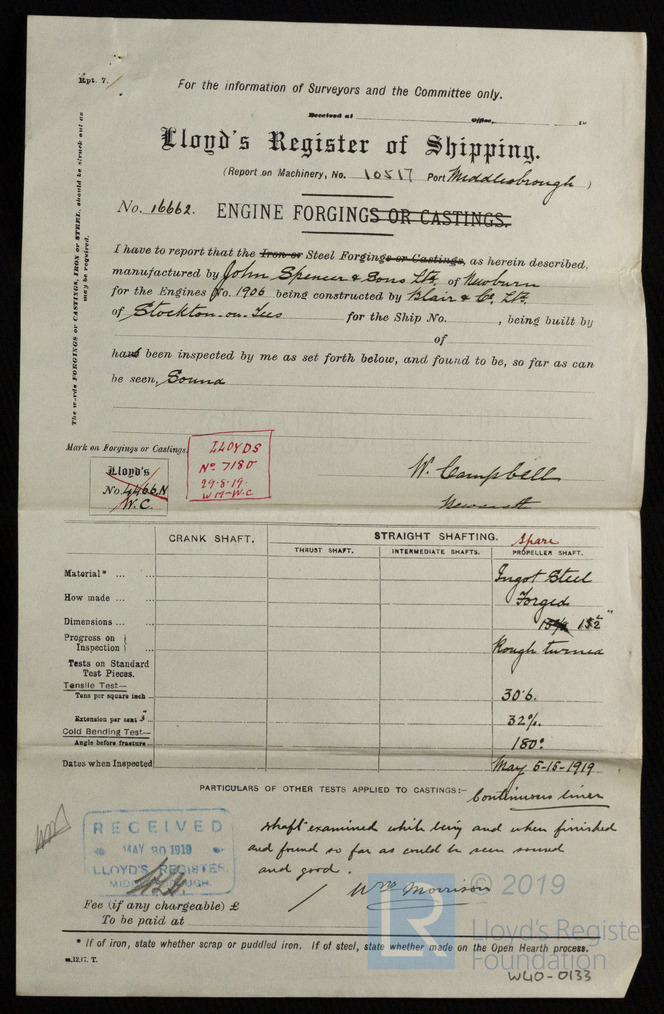 Rpt. 7.
For the information of Surveyors and the Committee only.
Received at Office, 19
Lloyd's Register of Shipping.
(Report on Machinery, No. 10517 Port Middlesbrough)
No. 16662. ENGINE FORGINGS OR CASTINGS.
The words FORGINGS or CASTINGS, IRON or STEEL, should be struck out as
may be required.
I have to report that the Iron or Steel Forgings or Castings, as herein described,
manufactured by John Spencer & Sons Ltd. of Newburn
for the Engines No. 1906 being constructed by Blair & Co. Ltd.
of Stockton-on-Tees for the Ship No. , being built by
of
have been inspected by me as set forth below, and found to be, so far as can
be seen, Sound
Mark on Forgings or Castings.
Lloyd's
No. 4466.N
W.C.
LLOYDS
No 7180
29.8.19.
W.M-W.C
W. Campbell
Newcastle
CRANK SHAFT. STRAIGHT SHAFTING. Spare
THRUST SHAFT. INTERMEDIATE SHAFTS. PROPELLER SHAFT.
Material* ... ... Ingot Steel
How made ... ... Forged
Dimensions ... ... 15½"
Progress on Inspection Rough turned
Tests on Standard
Test Pieces.
Tensile Test—
Tons per square inch 30.6.
Extension per cent 3" 32%.
Cold Bending Test—
Angle before fracture 180°
Dates when Inspected May 5-15-1919
PARTICULARS OF OTHER TESTS APPLIED TO CASTINGS:- Continuous liner
shaft examined while being and when finished
and found so far as could be seen sound
and good.
Wm Morrison
RECEIVED
MAY 30 1919
LLOYD'S REGISTER,
MIDDLESBROUGH.
Fee (if any chargeable) £
To be paid at
* If of iron, state whether scrap or puddled iron. If of steel, state whether made on the Open Hearth process.
m.12,17. T.
© 2019
LR
Lloyd's Register
Foundation
W40-0133